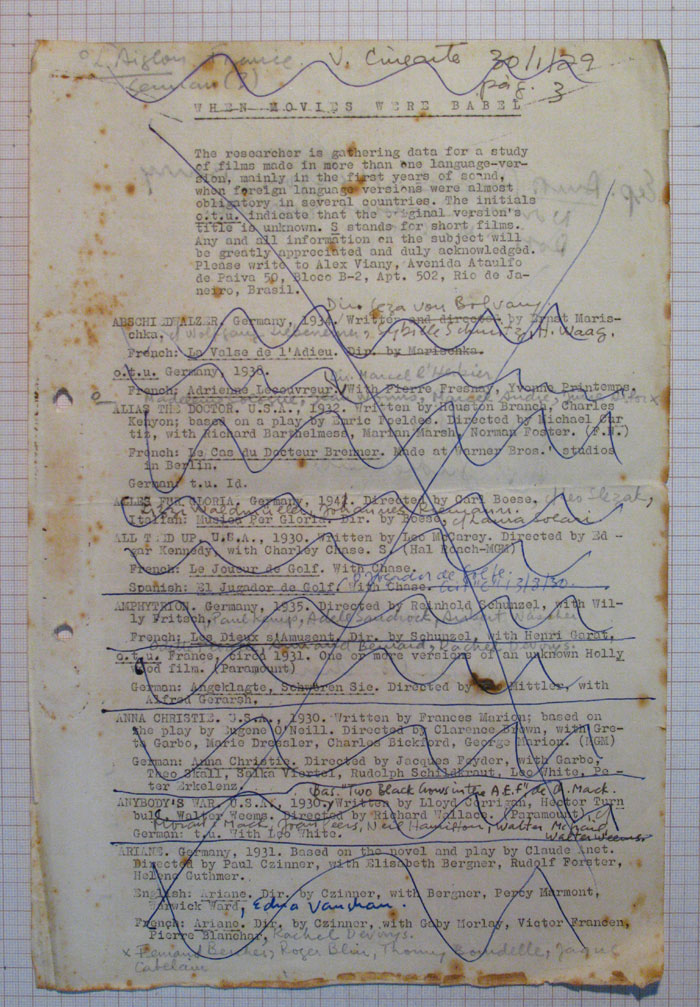 L'Aiglon France V. Cinearte 30/1/29
German (?) pág. 3
WHEN MOVIES WERE BABEL
The researcher is gathering data for a study
of films made in more than one language-ver-
sion, mainly in the first years of sound,
when foreign language versions were almost
obligatory in several countries. The initials
o.t.u. indicate that the original version's
title is unknown. S stands for short films.
Any and all information on the subject will
be greatly appreciated and duly acknowledged.
Please write to Alex Viany, Avenida Ataulfo
de Paiva 50, Bloco B-2, Apt. 502, Rio de Ja-
neiro, Brasil.
Dir. Geza von Bolvany
ABSCHIEDWALZER. Germany, 1934. Written and directed by Ernst Maris-
chka, H. Waag.
French: La Valse de l'Adieu. Dir. by Marischka.
Dir. Marcel l'Herbier
o.t.u. Germany 1938.
French: Adrienne Lecouvreur. With Pierre Fresnay, Yvonne Printemps,
ALIAS THE DOCTOR. U.S.A., 1932. Written by Houston Branch, Charles
Kenyon; based on a play by Emric Foeldes. Directed by Michael Cur
tiz, with Richard Barthelmess, Marian Marsh, Norman Foster. (F.N.)
French: Le Cas du Docteur Brenner. Made at Warner Bros.' studios
in Berlin.
German: t.u. Id.
ALLES FUR GLORIA. Germany, 1941. Directed by Carl Boese, Leo Slezak,
Italian: Musica Per Gloria. Dir. by Boese, c/ Laura Solari
ALL TIED UP. U.S.A., 1930. Written by Leo McCarey. Directed by Ed -
gar Kennedy, with Charley Chase. S. (Hal Roach-MGM)
French: Le Joueur de Golf. With Chase.
Spanish: El Jugador de Golf. With Chase. 13/3/30.
AMPHYTRION. Germany, 1935. Directed by Reinhold Schunzel, with Wil-
ly Fritsch, Paul Kemp, Adele Sandrock,
French: Les Dieux s'Amusent. Dir. by Schunzel, with Henri Garat,
Armand Bernard, Rachel Devirys.
o.t.u. France, circa 1931. One or more versions of an unknown Holly
wood film. (Paramount)
German: Angeklagte, Schwören Sie. Directed by Mittler, with
Alfred Gerarsh.
ANNA CHRISTIE. U.S.A., 1930. Written by Frances Marion; based on
the play by Eugene O'Neill. Directed by Clarence Brown, with Gre-
ta Garbo, Marie Dressler, Charles Bickford, George Marion. (MGM)
German: Anna Christie. Directed by Jacques Feyder, with Garbo,
Theo Shall, Salka Viertel, Rudolph Schildkraut, Leo White, Pe -
ter Erkelenz.
Bas. "Two Black Crows in the A.E.F." de C. Mack.
ANYBODY'S WAR. U.S.A., 1930. Written by Lloyd Corrigan, Hector Turn
bull, Walter Weems. Directed by Richard Wallace. (Paramount) c/
Moran, Mack, Joan Peers, Neil Hamilton, Walter McGrail,
German: t.u. With Leo White. Walter Weems
ARIANE. Germany, 1931. Based on the novel and play by Claude Anet.
Directed by Paul Czinner, with Elisabeth Bergner, Rudolf Forster,
Helene Guthmer.
English: Ariane. Dir. by Czinner, with Bergner, Percy Marmont,
Warwick Ward, Edna Vaughan.
French: Ariane. Dir. by Czinner, with Gaby Morlay, Victor Francen,
Pierre Blanchar, Rachel Devirys.
x Fernand Bercher, Roger Blin, Thomy Bourdelle, Jaque
Catelain